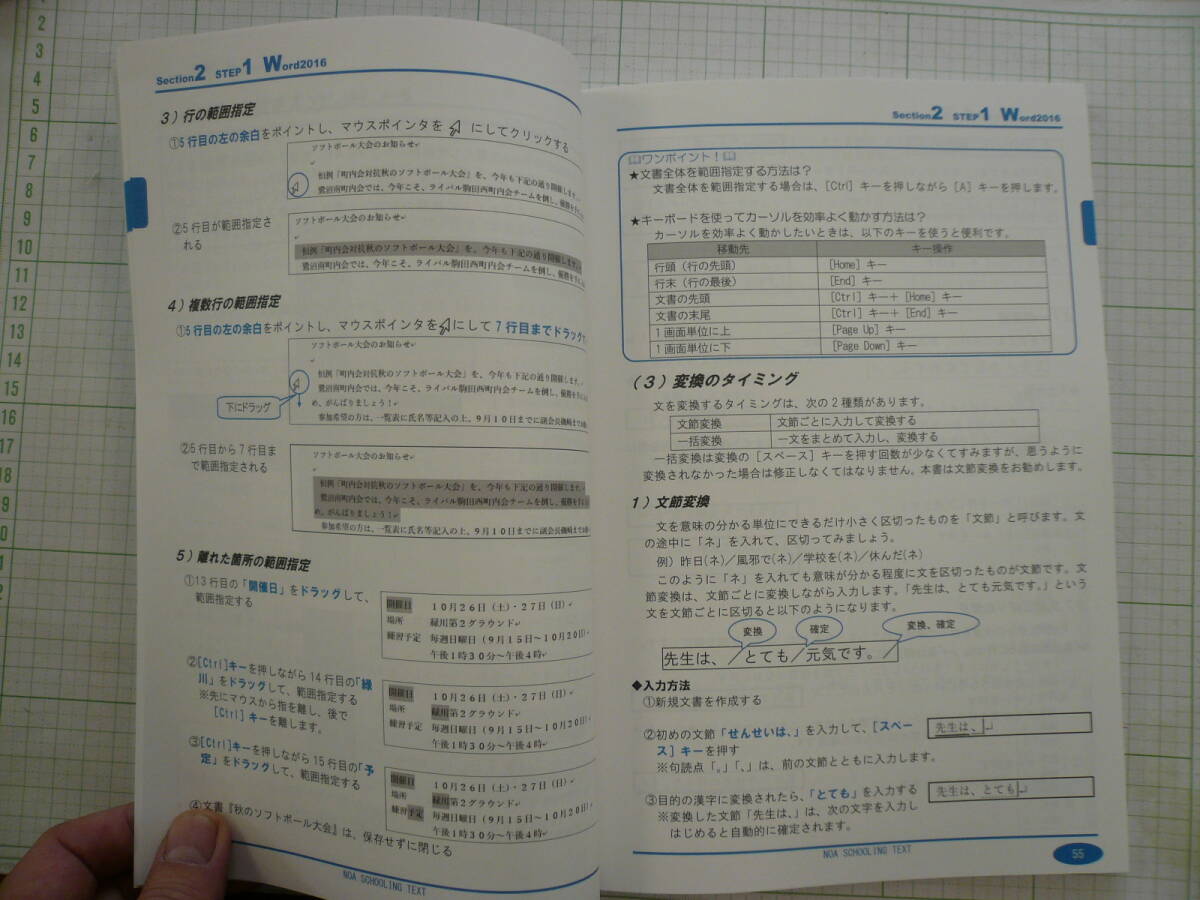 Section2 STEP1 Word2016
3）行の範囲指定
①5行目の左の余白をポイントし、マウスポインタを にしてクリックする
ソフトボール大会のお知らせ
恒例「町内会対抗秋のソフトボール大会」を、今年も下記の通り開催します。
鷺沼南町内会では、今年こそ、ライバル駒田西町内会チームを倒し、優勝を
②5行目が範囲指定さ
れる
ソフトボール大会のお知らせ
恒例「町内会対抗秋のソフトボール大会」を、今年も下記の通り開催します。
鷺沼南町内会では、今年こそ、ライバル駒田西町内会チームを倒し、優勝を
4）複数行の範囲指定
①5行目の左の余白をポイントし、マウスポインタを にして7行目までドラッグ
ソフトボール大会のお知らせ
恒例「町内会対抗秋のソフトボール大会」を、今年も下記の通り開催します。
鷺沼南町内会では、今年こそ、ライバル駒田西町内会チームを倒し、優勝を
め、がんばりましょう！
参加希望の方は、一覧表に氏名等記入の上、9月10日までに副会長磯崎まで
下にドラッグ
②5行目から7行目ま
で範囲指定される
ソフトボール大会のお知らせ
恒例「町内会対抗秋のソフトボール大会」を、今年も下記の通り開催します。
鷺沼南町内会では、今年こそ、ライバル駒田西町内会チームを倒し、優勝を
め、がんばりましょう！
参加希望の方は、一覧表に氏名等記入の上、9月10日までに副会長磯崎まで
5）離れた箇所の範囲指定
①13行目の「開催日」をドラッグして、
範囲指定する
開催日 10月26日（土）・27日（日）
場所 緑川第2グラウンド
練習予定 毎週日曜日（9月15日～10月20日）
午後1時30分～午後4時
②[Ctrl]キーを押しながら14行目の「緑
川」をドラッグして、範囲指定する
※先にマウスから指を離し、後で
[Ctrl]キーを離します。
開催日 10月26日（土）・27日（日）
場所 緑川第2グラウンド
練習予定 毎週日曜日（9月15日～10月20日）
午後1時30分～午後4時
③[Ctrl]キーを押しながら15行目の「予
定」をドラッグして、範囲指定する
開催日 10月26日（土）・27日（日）
場所 緑川第2グラウンド
練習予定 毎週日曜日（9月15日～10月20日）
午後1時30分～午後4時
④文書『秋のソフトボール大会』は、保存せずに閉じる
NOA SCHOOLING TEXT
Section2 STEP1 Word2016
ワンポイント！
★文書全体を範囲指定する方法は？
文書全体を範囲指定する場合は、[Ctrl]キーを押しながら[A]キーを押します。
★キーボードを使ってカーソルを効率よく動かす方法は？
カーソルを効率よく動かしたいときは、以下のキーを使うと便利です。
移動先 キー操作
行頭（行の先頭） [Home]キー
行末（行の最後） [End]キー
文書の先頭 [Ctrl]キー＋[Home]キー
文書の末尾 [Ctrl]キー＋[End]キー
1画面単位に上 [Page Up]キー
1画面単位に下 [Page Down]キー
（3）変換のタイミング
文を変換するタイミングは、次の2種類があります。
文節変換 文節ごとに入力して変換する
一括変換 一文をまとめて入力し、変換する
一括変換は変換の[スペース]キーを押す回数が少なくてすみますが、思うように
変換されなかった場合は修正しなくてはなりません。本書は文節変換をお勧めします。
1）文節変換
文を意味の分かる単位にできるだけ小さく区切ったものを「文節」と呼びます。文
の途中に「ネ」を入れて、区切ってみましょう。
例）昨日(ネ)／風邪で(ネ)／学校を(ネ)／休んだ(ネ)
このように「ネ」を入れても意味が分かる程度に文を区切ったものが文節です。文
節変換は、文節ごとに変換しながら入力します。「先生は、とても元気です。」という
文を文節ごとに区切ると以下のようになります。
変換 確定 変換、確定
先生は、／とても／元気です。／
◆入力方法
①新規文書を作成する
②初めの文節「せんせいは、」を入力して、[スペー
ス]キーを押す
※句読点「。」「、」は、前の文節とともに入力します。
先生は、
③目的の漢字に変換されたら、「とても」を入力する
※変換した文節「先生は、」は、次の文字を入力し
はじめると自動的に確定されます。
先生は、とても
NOA SCHOOLING TEXT
55
2
3
4
5
6
7
8
9
10
11
12
13
14
15
16
17
18